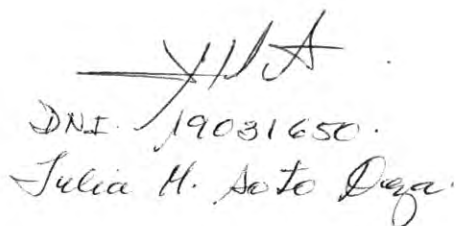 DNI. 19031650.
Julia M. Soto Deza.